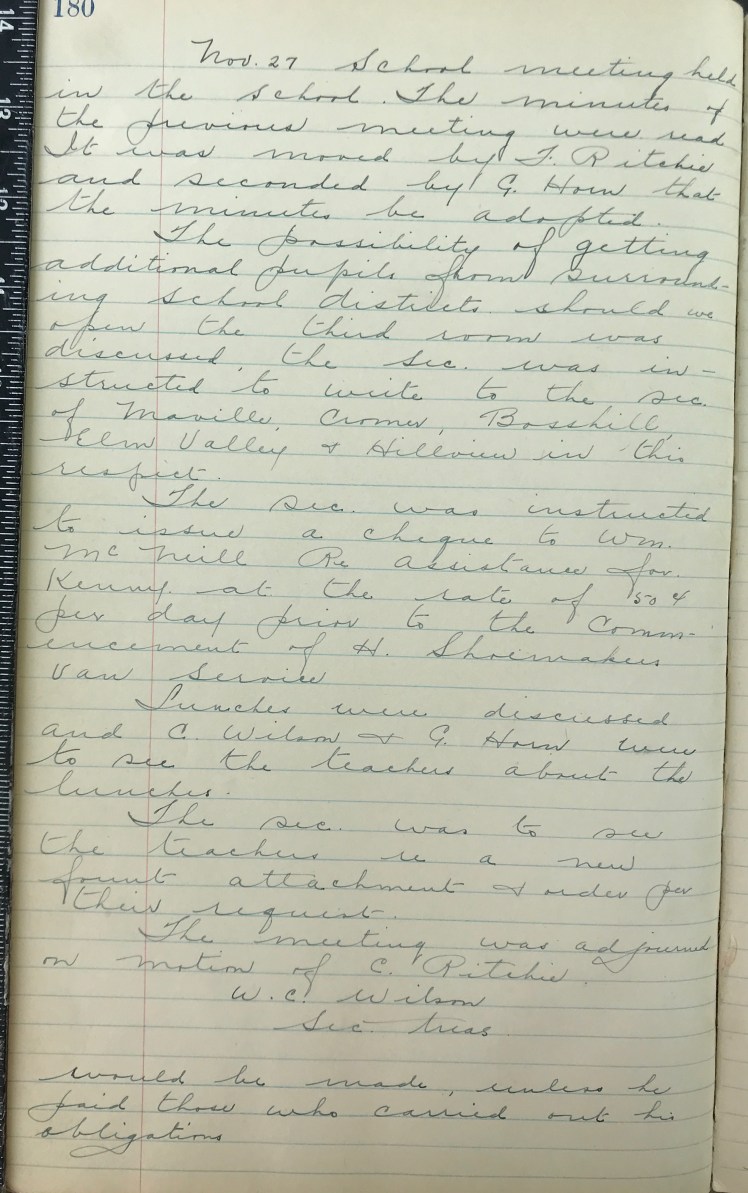 180
Nov. 27 School meeting held
in the school. The minutes of
the previous meeting were read
It was moved by F. Ritchie
and seconded by G. Horn that
the minutes be adopted.
The possibility of getting
additional pupils from surround-
ing school districts should we
open the third room was
discussed, the sec. was in-
structed to write to the sec.
of Maville, Cromer, Bosshill,
Elm Valley & Hillview in this
respect.
The sec. was instructed
to issue a cheque to Wm.
McNeill Re assistance for
Kenny at the rate of 50 ¢
per day prior to the Comm-
encement of H. Shoemakers
van service
Lunches were discussed
and C. Wilson & G. Horn were
to see the teachers about the
lunches.
The sec. was to see
the teachers re a new
fount attachment & order per
their request.
The meeting was adjourned
on motion of C. Ritchie.
W. C. Wilson
Sec. Treas
would be made, unless he
paid those who carried out his
obligations